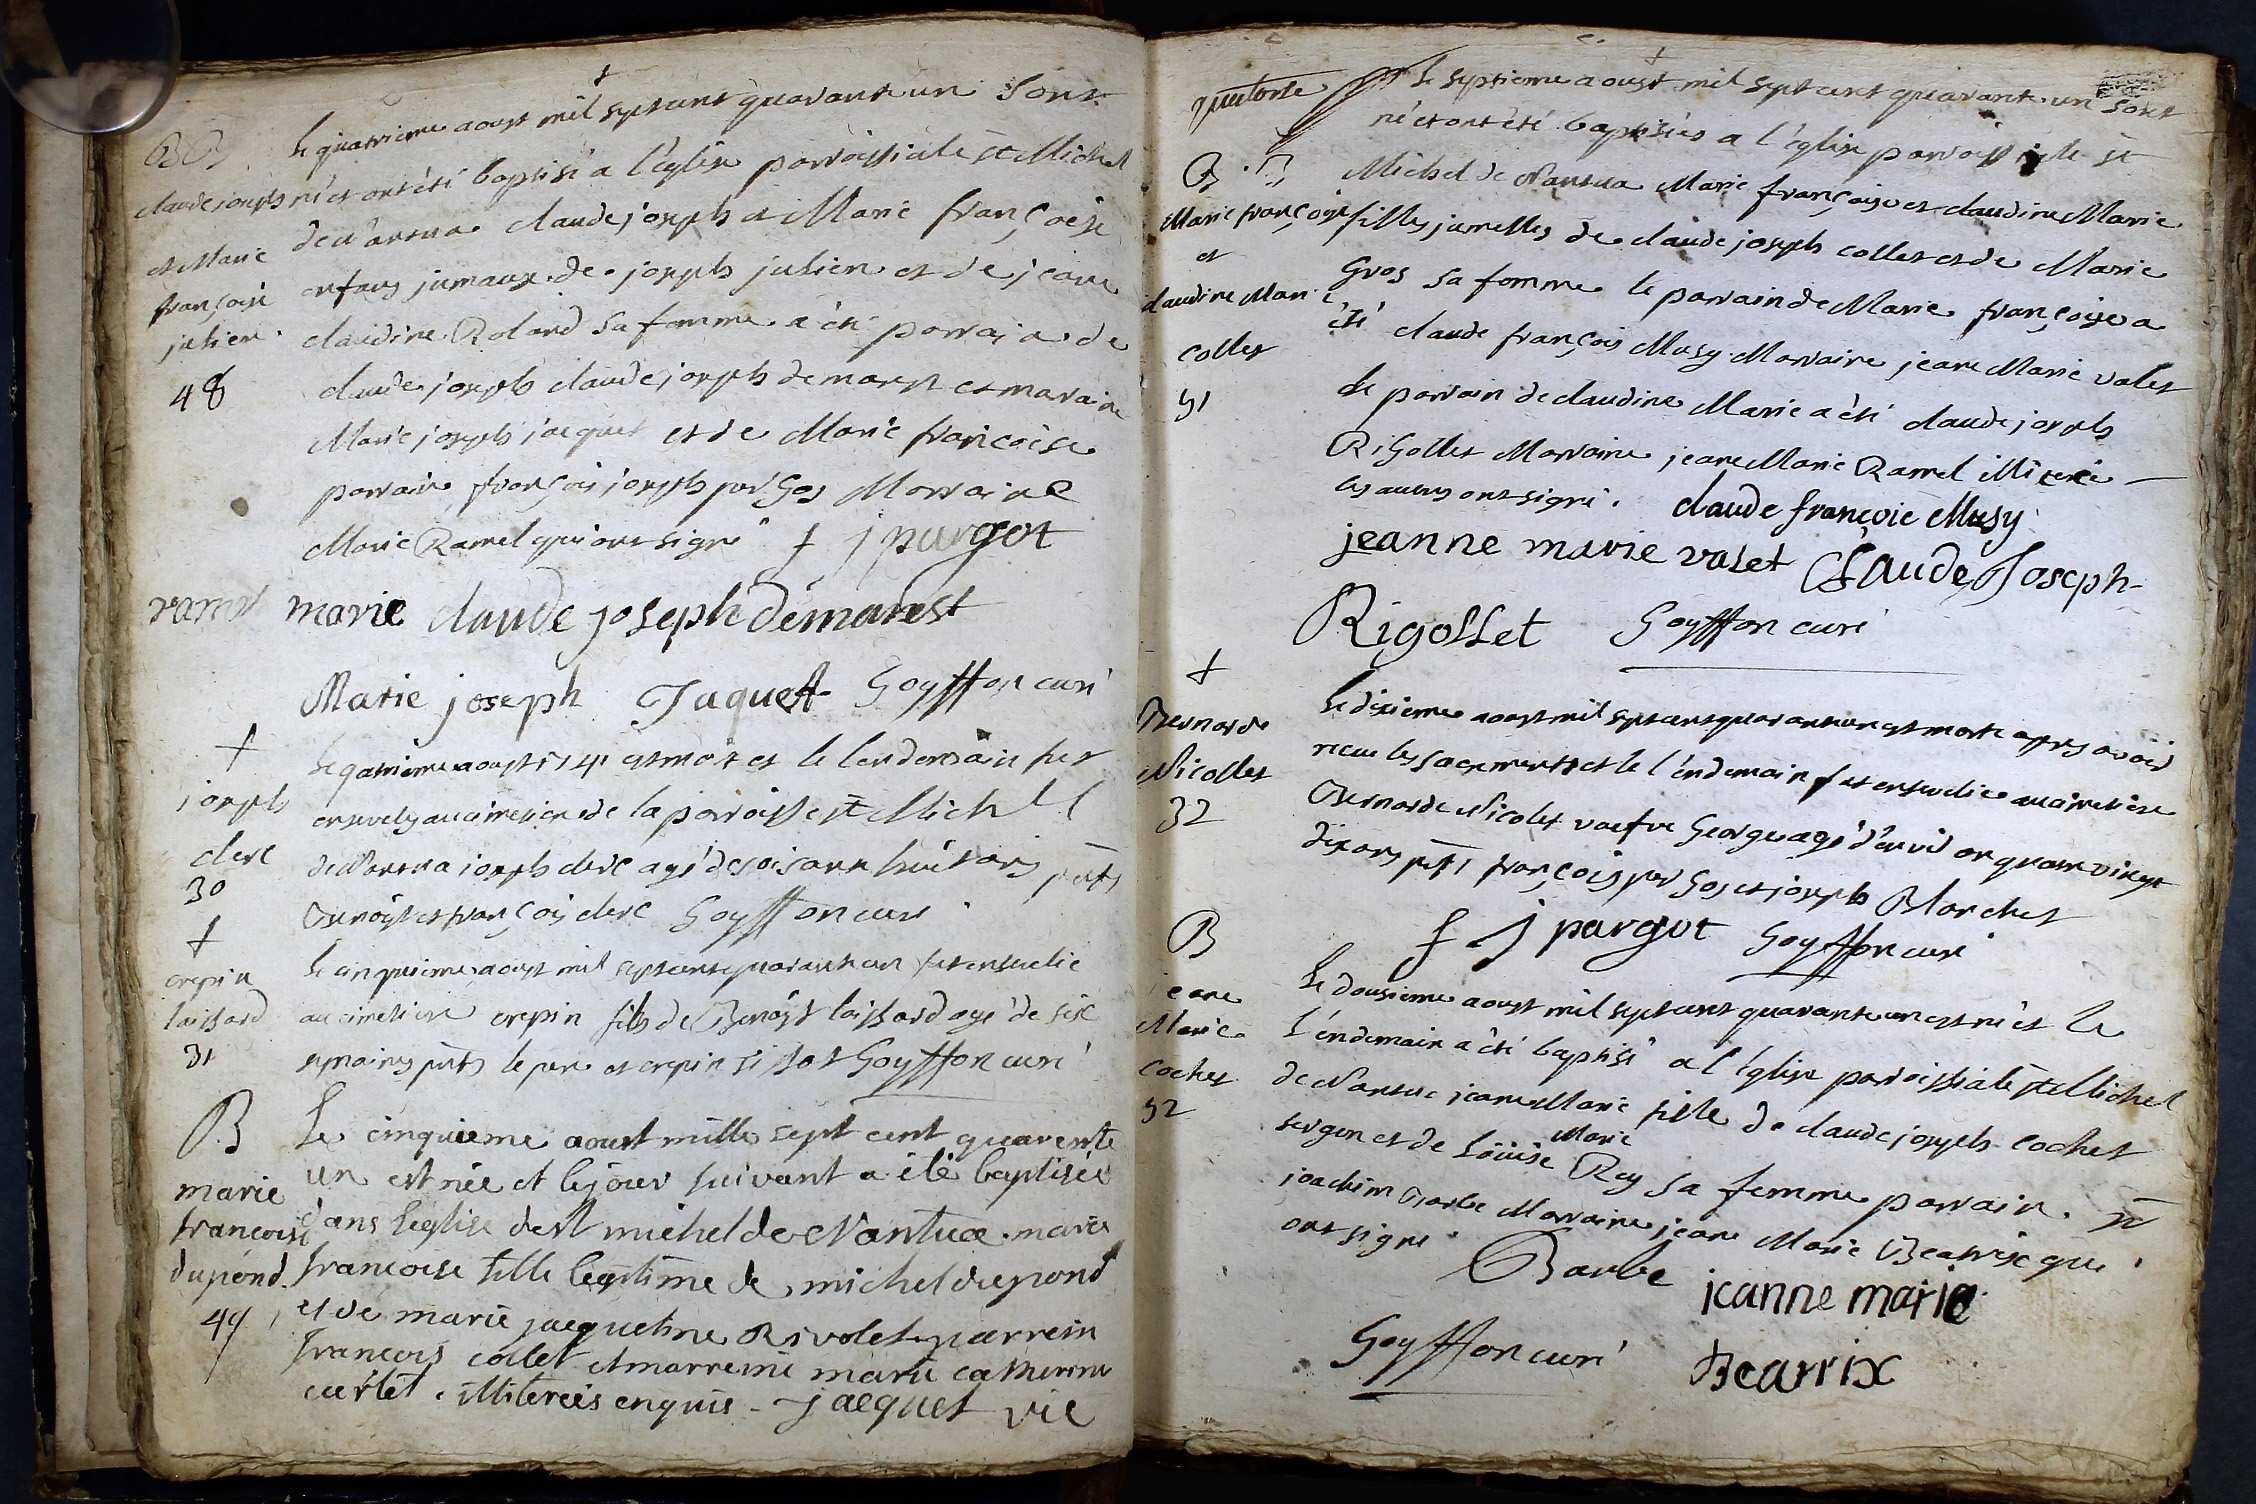 Le quatrieme aoust mil sept cent quarant un sont
B B
claude joseph
et Marie
françoise
julien
48
né et ont été baptisé a l'église parroissiale st Michel
de Nantua claude joseph et Marie françoise
enfans jumaux de joseph julien et de jeane
claudine Roland sa femme a été parrain de
claude joseph claude joseph demarest et maraine
Marie joseph jacquet et de Marie françoise
parrain françois joseph Marraine
Marie Ramel qui ont signé f j purgot
ramel marie claude joseph démarest
Marie joseph Jaquet Goyffon curé
+
joseph
clerc
30
Le quatrieme aoust 1741 est mort et le lendemain fut
ensevely au cimetiere de la parroisse st Michel
de Nantua joseph clerc agé de soisante huit ans pnts
Benoist et françois clerc Goyffon curé
+
crepin
laissard
31
Le cinquieme aoust mil sept cent quarante un fut ensevelie
au cimetiere crepin fils de Benoist laissard agé de six
semaines pnts le pere et crepin Goyffon curé
B
marie
francoise
dupond
49
Le cinquieme aoust mille sept cent quarente
un est née et le jour suivant a été baptisée
dans l'eglise de st michel de Nantua marie
francoise fille legitime de michel dupont
et de marie jacquetine Rivolet parrein
francois colet et marreine marie catherine
curtet illiterées enquis Jacquet vic
quatorse
Le septieme aoust mil sept cent quarante un sont
B B
Marie françoise
et
claudine Marie
collet
51
né et ont été baptisées a l'église parroissiale st
Michel de Nantua Marie françoise et claudine Marie
filles jumelles de claude joseph collet et de Marie
Gros sa femme le parrain de Marie françoise a
été claude françois Musy Marraine jeane Marie valet
le parrain de claudine Marie a été claude joseph
Rigollet Marraine jeane Marie Ramel
les autres ont signé. claude françoie Musy
jeanne marie valet Claude Joseph
Rigollet Goyffon curé
+
Bernarde
Nicollet
32
Le dixieme aoust mil sept cent quarante un est morte apres avoir
recue les sacrements et le l'endemain fut ensevelie au cimetiere
Bernarde Nicolet veufve George agé d'environ quatre vingt
dix ans françois et joseph Blanchet
f j purgot Goyffon curé
B
jeane
Marie
Cochet
52
Le dousieme aoust mil sept cent quarante un est né et le
L'endemain a été baptisé a l'église parroissiale st Michel
de Nantua jeane Marie fille de claude joseph cochet
sergen et de Loüise Marie Rey sa femme parrain
joachim Barbe Marraine jeane Marie Beatrix qui
ont signé. Barbe jeanne marie
Goyffon curé Beatrix